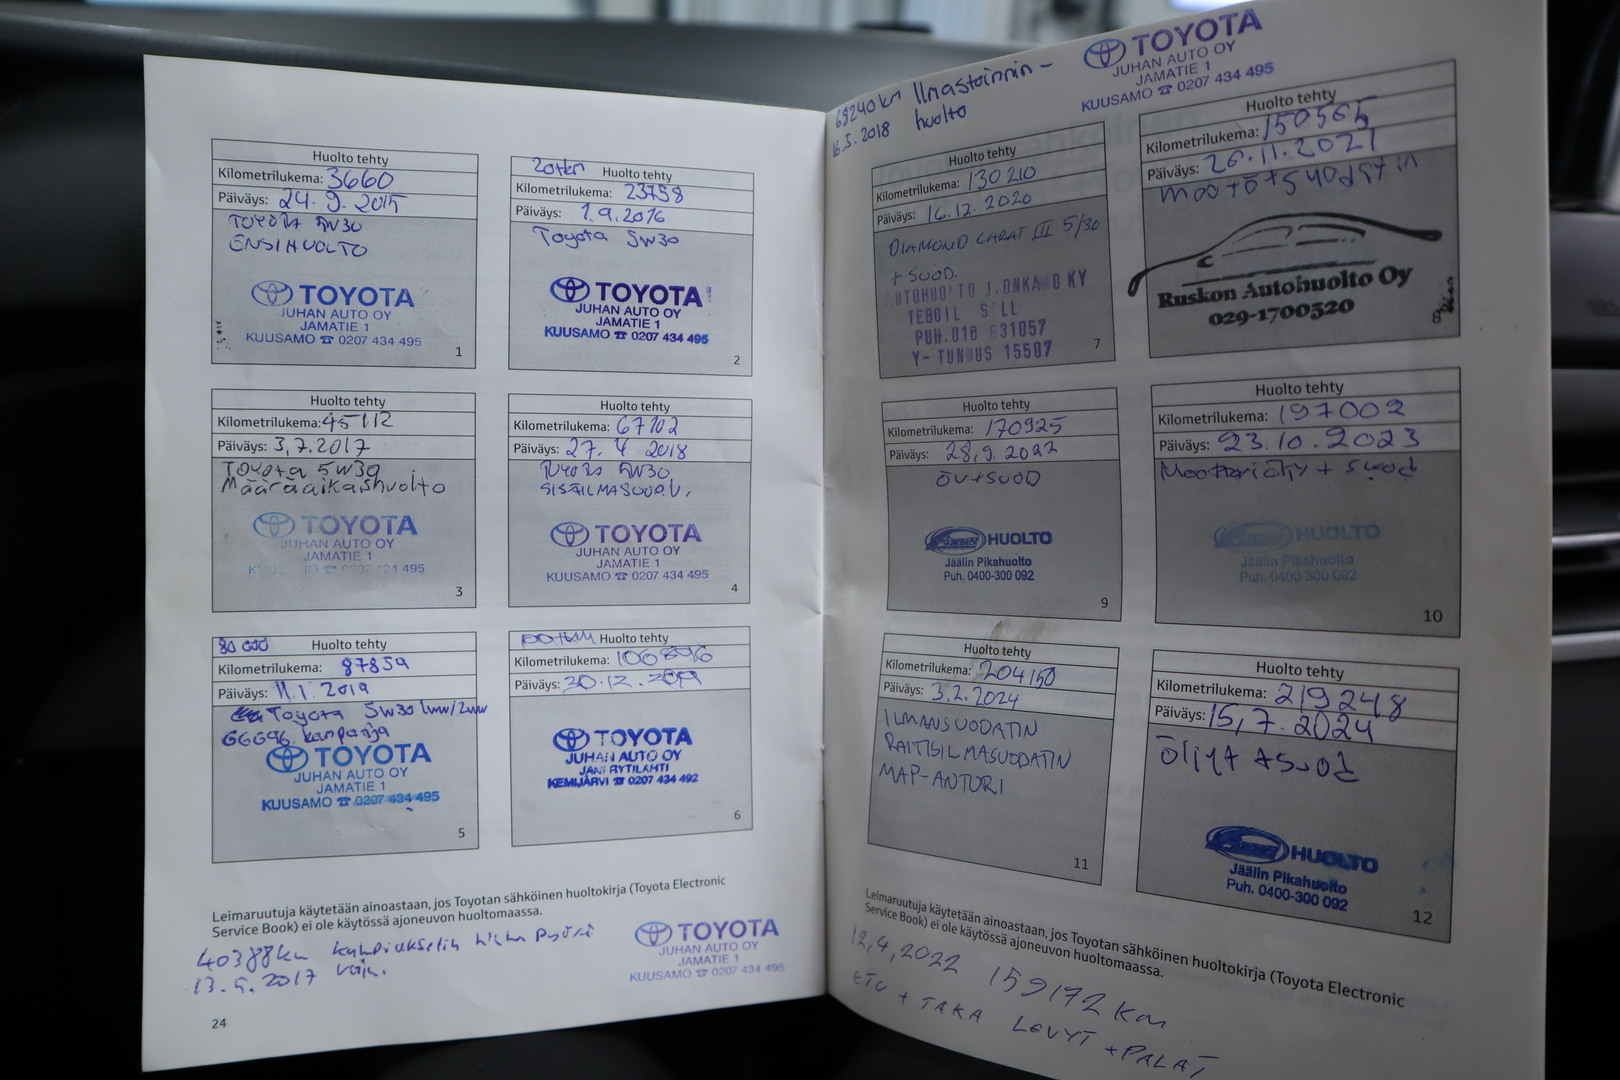 Huolto tehty
Kilometrilukema: 3660
Päiväys: 24.9.2015
TOYOTA 5W30
ENSIHUOLTO
TOYOTA
JUHAN AUTO OY
JAMATIE 1
KUUSAMO ☎ 0207 434 495
1
20tkm Huolto tehty
Kilometrilukema: 23758
Päiväys: 1.9.2016
Toyota 5W30
TOYOTA
JUHAN AUTO OY
JAMATIE 1
KUUSAMO ☎ 0207 434 495
2
Huolto tehty
Kilometrilukema: 45112
Päiväys: 3.7.2017
Toyota 5W30
Määräaikaishuolto
TOYOTA
JUHAN AUTO OY
JAMATIE 1
☎ 0207 434 495
3
Huolto tehty
Kilometrilukema: 67102
Päiväys: 27.4 2018
TOYOTA 5W30
SISÄILMASUOD.V.
TOYOTA
JUHAN AUTO OY
JAMATIE 1
KUUSAMO ☎ 0207 434 495
4
80 000 Huolto tehty
Kilometrilukema: 87859
Päiväys: 11.1.2019
Toyota 5W30
kampanja
TOYOTA
JUHAN AUTO OY
JAMATIE 1
KUUSAMO ☎ 0207 434 495
5
100tkm Huolto tehty
Kilometrilukema:
Päiväys: 30.12.2019
TOYOTA
JUHAN AUTO OY
JANI RYTILAHTI
KEMIJÄRVI ☎ 0207 434 492
6
Leimaruutuja käytetään ainoastaan, jos Toyotan sähköinen huoltokirja (Toyota Electronic
Service Book) ei ole käytössä ajoneuvon huoltomaassa.
40388km
2017
TOYOTA
JUHAN AUTO OY
JAMATIE 1
KUUSAMO ☎ 0207 434 495
24
68240km Ilmastoinnin-
16.5.2018 huolto
TOYOTA
JUHAN AUTO OY
JAMATIE 1
KUUSAMO ☎ 0207 434 495
Huolto tehty
Kilometrilukema: 130210
Päiväys: 16.12.2020
DIAMOND CARAT III 5/30
+ SUOD.
TEBOIL
PUH.016 631057
Y-TUNNUS 15507
7
Huolto tehty
Kilometrilukema: 150565
Päiväys: 26.11.2021
Ruskon Autohuolto Oy
029-1700520
8
Huolto tehty
Kilometrilukema: 170925
Päiväys: 28.9.2022
ÖV+SUOD
HUOLTO
Jäälin Pikahuolto
Puh. 0400-300 092
9
Huolto tehty
Kilometrilukema: 197002
Päiväys: 23.10.2023
Moottoriöljy + suod
HUOLTO
Jäälin Pikahuolto
Puh. 0400-300 092
10
Huolto tehty
Kilometrilukema: 204150
Päiväys: 3.2.2024
ILMANSUODATIN
RAITISILMASUODATIN
MAP-ANTURI
11
Huolto tehty
Kilometrilukema: 219248
Päiväys: 15,7.2024
Öljyt +suod
HUOLTO
Jäälin Pikahuolto
Puh. 0400-300 092
12
Leimaruutuja käytetään ainoastaan, jos Toyotan sähköinen huoltokirja (Toyota Electronic
Service Book) ei ole käytössä ajoneuvon huoltomaassa.
12,4,2022 159172 km
ETU + TAKA LEVYT + PALAT